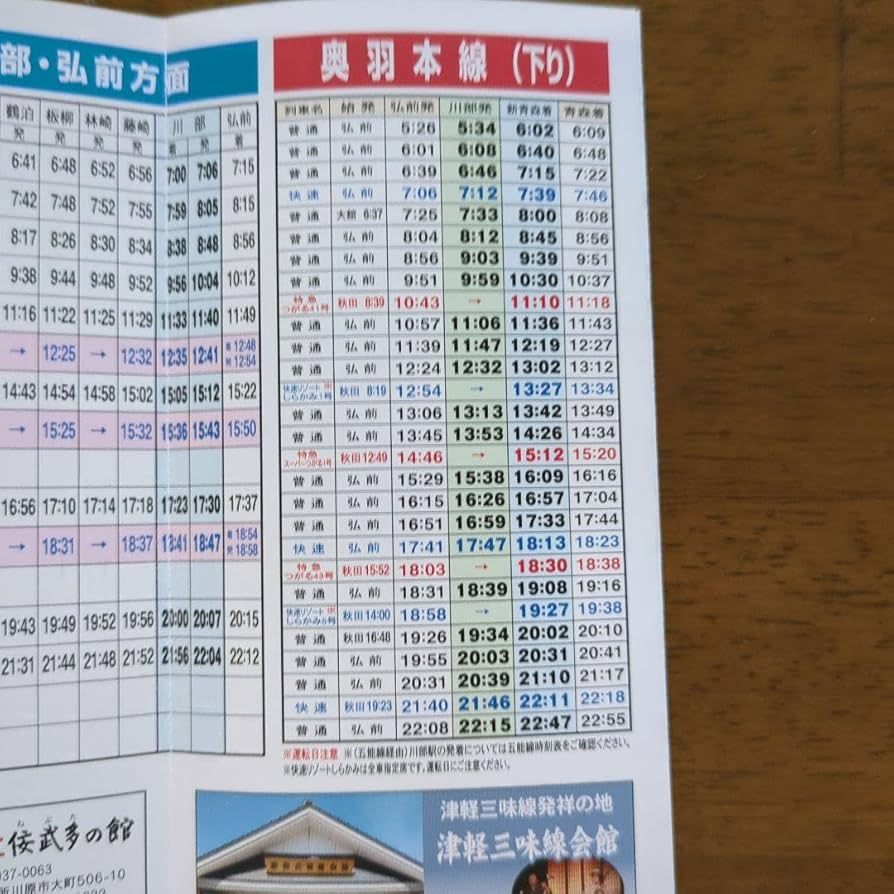 部・弘前方面
鶴泊 板柳 林崎 藤崎 川部 弘前
発 発 発 発 着 発 着
6:41 6:48 6:52 6:56 7:00 7:06 7:15
7:42 7:48 7:52 7:55 7:59 8:05 8:15
8:17 8:26 8:30 8:34 8:38 8:48 8:56
9:38 9:44 9:48 9:52 9:56 10:04 10:12
11:16 11:22 11:25 11:29 11:33 11:40 11:49
→ 12:25 → 12:32 12:35 12:41 着12:48 発12:54
14:43 14:54 14:58 15:02 15:05 15:12 15:22
→ 15:25 → 15:32 15:36 15:43 15:50
16:56 17:10 17:14 17:18 17:23 17:30 17:37
→ 18:31 → 18:37 18:41 18:47 着18:54 発18:58
19:43 19:49 19:52 19:56 20:00 20:07 20:15
21:31 21:44 21:48 21:52 21:56 22:04 22:12
奥羽本線(下り)
列車名 始発 弘前発 川部発 新青森着 青森着
普通 弘前 5:26 5:34 6:02 6:09
普通 弘前 6:01 6:08 6:40 6:48
普通 弘前 6:39 6:46 7:15 7:22
快速 弘前 7:06 7:12 7:39 7:46
普通 大館 6:37 7:25 7:33 8:00 8:08
普通 弘前 8:04 8:12 8:45 8:56
普通 弘前 8:56 9:03 9:39 9:51
普通 弘前 9:51 9:59 10:30 10:37
特急つがる41号 秋田 8:39 10:43 → 11:10 11:18
普通 弘前 10:57 11:06 11:36 11:43
普通 弘前 11:39 11:47 12:19 12:27
普通 弘前 12:24 12:32 13:02 13:12
快速リゾート※しらかみ1号 秋田 8:19 12:54 → 13:27 13:34
普通 弘前 13:06 13:13 13:42 13:49
普通 弘前 13:45 13:53 14:26 14:34
特急スーパーつがる1号 秋田12:49 14:46 → 15:12 15:20
普通 弘前 15:29 15:38 16:09 16:16
普通 弘前 16:15 16:26 16:57 17:04
普通 弘前 16:51 16:59 17:33 17:44
快速 弘前 17:41 17:47 18:13 18:23
特急つがる43号 秋田15:52 18:03 → 18:30 18:38
普通 弘前 18:31 18:39 19:08 19:16
快速リゾート※しらかみ5号 秋田14:00 18:58 → 19:27 19:38
普通 秋田16:48 19:26 19:34 20:02 20:10
普通 弘前 19:55 20:03 20:31 20:41
普通 弘前 20:31 20:39 21:10 21:17
快速 秋田19:23 21:40 21:46 22:11 22:18
普通 弘前 22:08 22:15 22:47 22:55
※運転日注意 ※(五能線経由)川部駅の発着については五能線時刻表をご確認ください。
※快速リゾートしらかみは全車指定席です。運転日にご注意ください。
佞武多の館
ねぷた
037-0063
所川原市大町506-10
津軽三味線発祥の地
津軽三味線会館